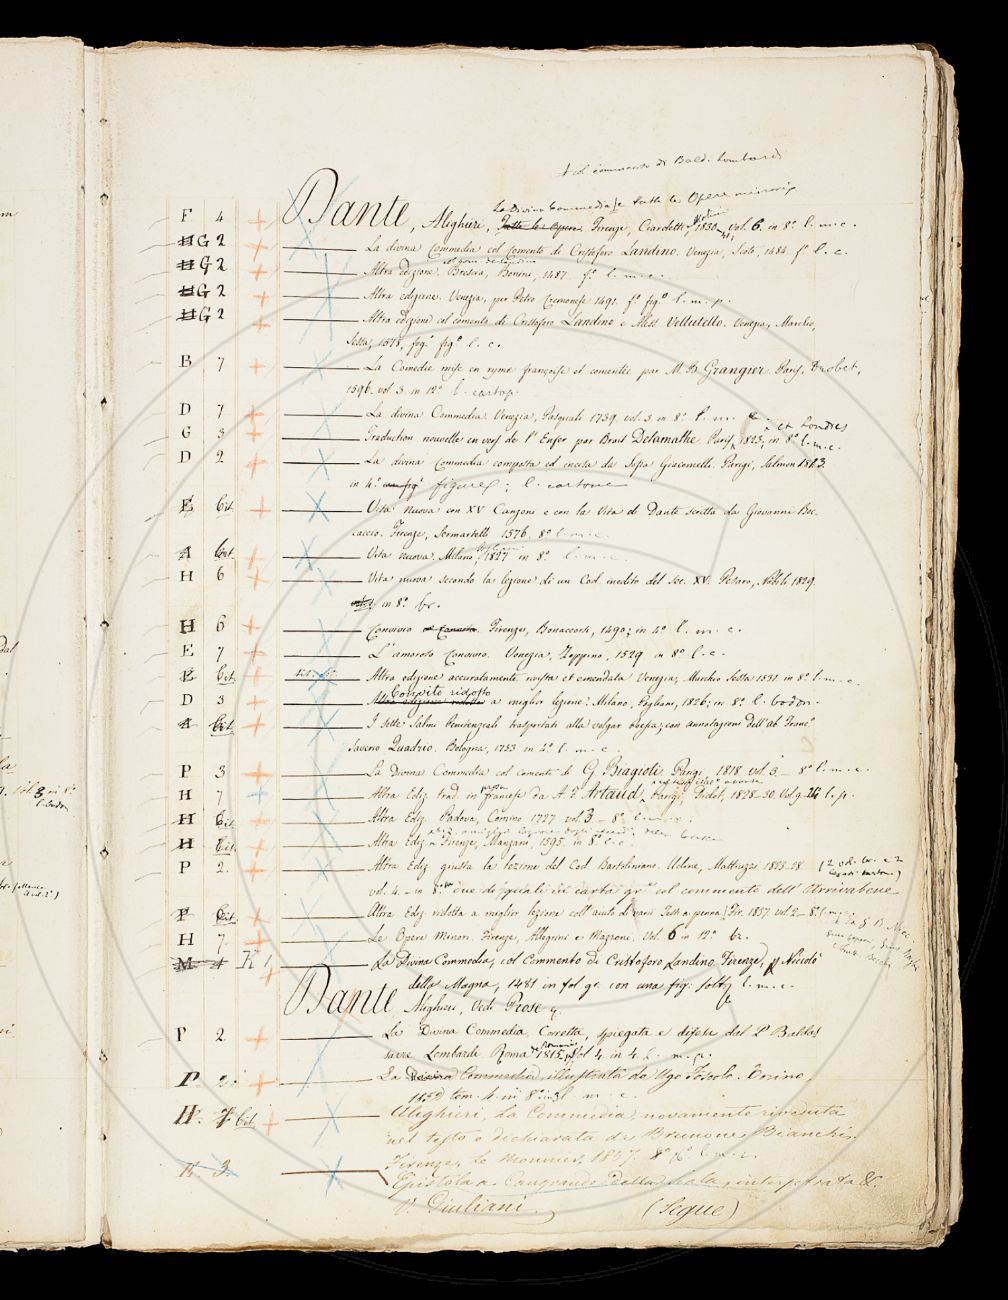 col commento di Bald. Lombardi
La Divina Commedia e tutte le Opere minori
F 4 Dante, Alighieri, Tutte le Opere Firenze, Ciardetti, 1830, vol. 6. in 8.° l. m. c.
H G 2 La divina Commedia col Comento di Cristoforo Landino. Venezia, Scoto, 1484. f.° l. c.
H G 2 Altra edizione. Brescia, Bonini, 1487. f.° l. m. c.
H G 2 Altra edizione. Venezia, per Petro Cremonese 1491. f.° fig.° l. m. p.
H G 2 Altra edizione col comento di Cristoforo Landino e Aless. Vellutello. Venezia, Marchio,
Sessa, 1578, fog.° fig.° l. c.
B 7 La Comedie mise en ryme françoise et comentée par M. B. Grangier. Paris, Drobet,
1596. vol. 3. in 12.° l. cartap.
D 7 La divina Commedia. Venezia, Pasquali 1739. vol. 3. in 8.° l. m. c.
et Londres
G 3 Traduction nouvelle en vers de l'Enfer par Brait Delamathe. Paris 1823, in 8.° l. m. c.
D 2 La divina Commedia composta ed incisa da Sofia Giacomelli. Parigi, Salmon 1813.
in 4.° figures; l. cartone
E Cit. Vita nuova con XV Canzone e con la Vita di Dante scritta da Giovanni Boc-
caccio. Firenze, Sermartelli 1576. 8.° l. m. c.
A Cit. Vita nuova. Milano, 1827 in 8.° l. m. c.
H 6 Vita nuova secondo la lezione di un Cod. inedito del Sec. XV. Pesaro, Nobili 1829.
in 8.° br.
H 6 Convivio. Firenze, Bonaccorsi, 1490; in 4.° l. m. c.
E 7 L'amoroso Convivio. Venezia, Zoppino, 1529 in 8.° l. c.
E Cit. Altra edizione accuratamente rivista et emendata Venezia, Marchio Sessa 1531. in 8.° l. m. c.
Convito ridotto
D 3 Altra edizione ridotta a miglior lezione. Milano, Pogliani, 1826; in 8.° l. bodon.
A Cit. I sette Salmi Penitenziali trasportati alla volgar Poesia; con annotazioni dell'Ab. Franc.°
Saverio Quadrio. Bologna, 1753 in 4.° l. m. c.
P 3 La Divina Commedia col comento di G. Biagioli. Parigi 1818. vol. 3. - 8.° l. m. c.
H 7 Altra Ediz. trad. in francese da A. Artaud, Parigi, Didot, 1828-30. Vol. 9. 24.° l. p.
H Cit. Altra Ediz. Padova, Comino 1727 vol. 3 - 8.° l. m. c.
H Cit. Altra Ediz. Firenze, Manzani, 1595. in 8.° l. c.
P 2. Altra Ediz. giusta la lezione del Cod. Bartoliniano. Udine, Mattiuzzi 1823-28
vol. 4. - in 8.° due de' quali in carta gr.° col commento dell'Arrivabene
P Cit. Altra Ediz. ridotta a miglior lezione coll'aiuto di varii Testi a penna. Fir. 1837. vol. 2 - 8.° l. m. c.
H 7. Le Opere Minori. Firenze, Allegrini e Mazzoni. Vol. 6 in 12.° br.
M 4 K 1 La Divina Commedia, col Commento di Cristoforo Landino. Firenze, p. Niccolò
della Magna, 1481 in fol. gr. con una fig. sola l. m. c.
Dante Alighieri, Vedi Prose
P 2. La Divina Commedia, Corretta, spiegata e difesa dal P. Baldas
sarre Lombardi Roma 1815. Vol. 4 in 4. l. m. p.
P 2. La Divina Commedia illustrata da Ugo Foscolo. Torino,
tom. 4. in 8.° l. m. c.
H. 7 Cit. Alighieri, La Commedia, novamente riveduta
nel testo e dichiarata da Brunone Bianchi.
Firenze, Le Monnier, 1857. 8.° l. m. c.
K 3. Epistola a Cangrande della Scala, interpretata &.
V. Giuliani.
(Segue)